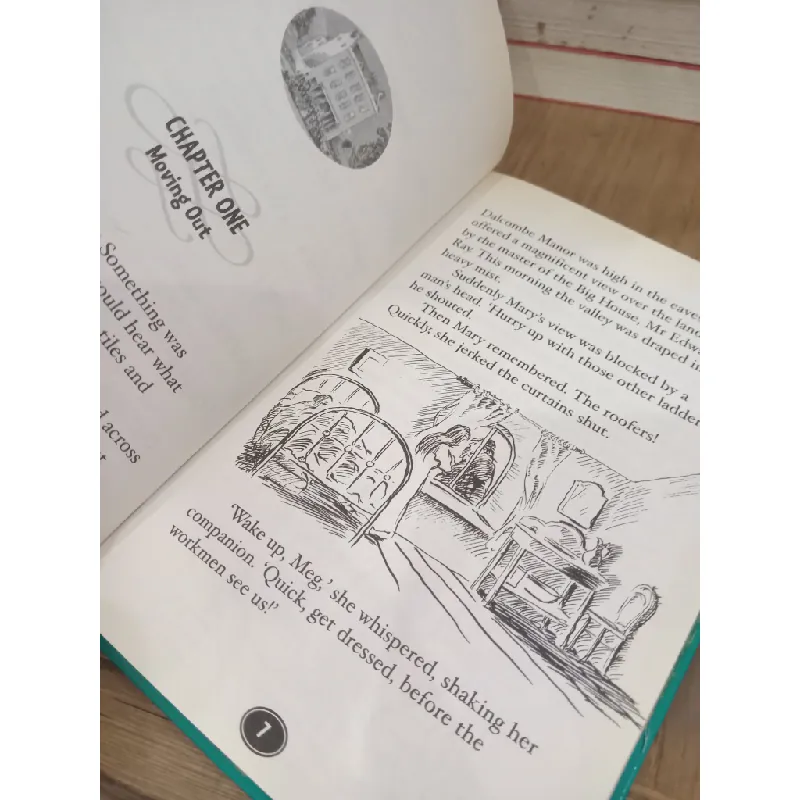 CHAPTER ONE
Moving Out
Something was
ould hear what
tiles and
d across
t
Dalcombe Manor was high in the eaves
offered a magnificent view over the land
by the master of the Big House, Mr Edw
Ray. This morning the valley was draped in
heavy mist.
Suddenly Mary's view was blocked by a
man's head. 'Hurry up with those other ladder
he shouted.
Then Mary remembered. The roofers!
Quickly, she jerked the curtains shut.
'Wake up, Meg,' she whispered, shaking her
companion. 'Quick, get dressed, before the
workmen see us!'
7